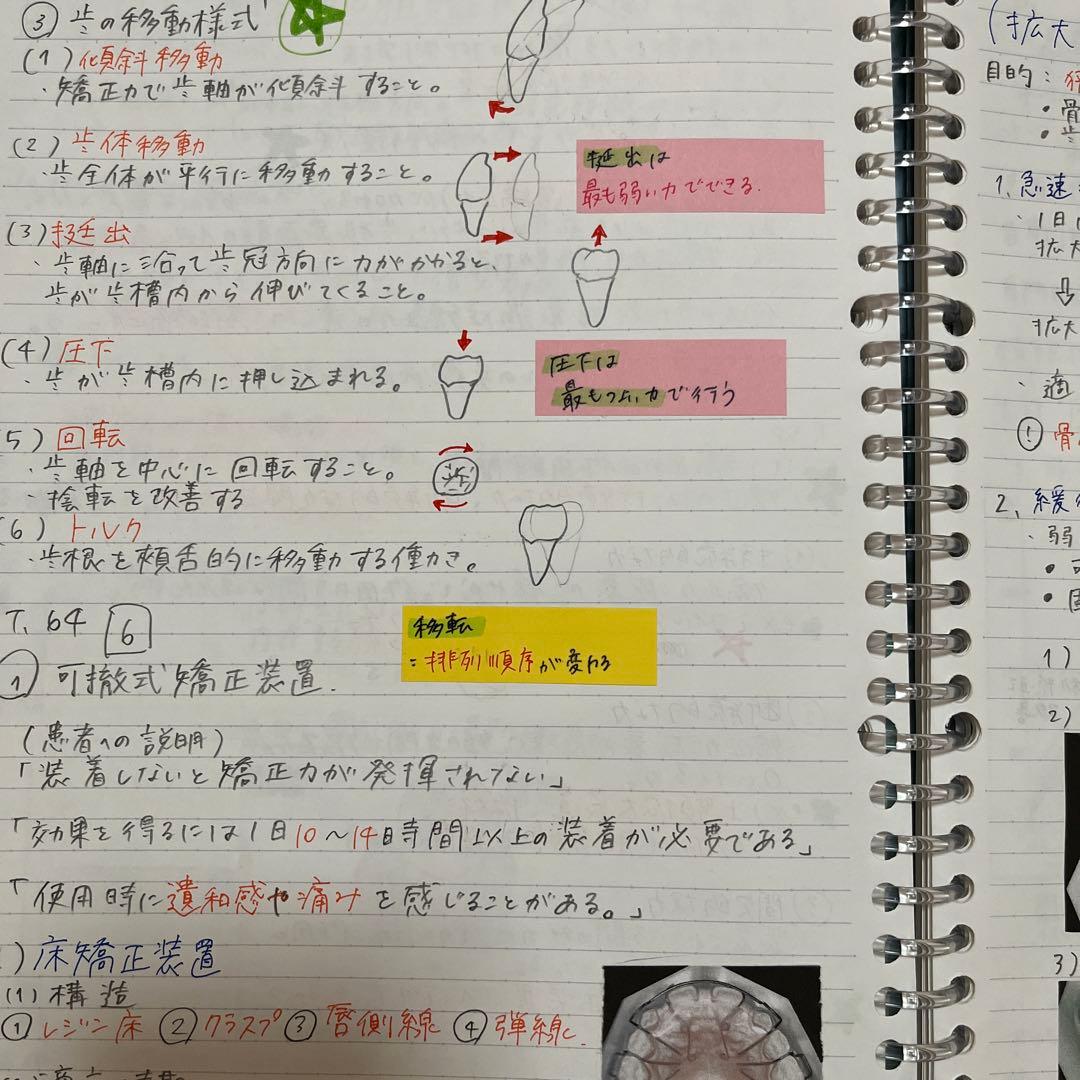 ③ 歯の移動様式
(1) 傾斜移動
・矯正力で歯軸が傾斜すること。
(2) 歯体移動
・歯全体が平行に移動すること。
挺出は
最も弱い力でできる.
(3) 挺出
・歯軸に沿って歯冠方向に力がかかると、
歯が歯槽内から伸びてくること。
(4) 圧下
・歯が歯槽内に押し込まれる。
圧下は
最もつよい力で行う
5) 回転
・歯軸を中心に回転すること。
・捻転を改善する
歯
(6) トルク
・歯根を頬舌的に移動する働き。
T. 64 6
移転
=排列順序が変わる
① 可撤式矯正装置.
(患者への説明)
「装着しないと矯正力が発揮されない」
「効果を得るには1日10〜14時間以上の装着が必要である」
「使用時に遺和感や痛みを感じることがある。」
)床矯正装置
(1) 構造
①レジン床 ②クラスプ ③唇側線 ④弾線.
(拡大
目的:
・骨
・歯
1. 急速
・1日
拡大
⇩
拡大
・適
! 骨
2. 緩
・弱
・可
・固
1)
2)
3)